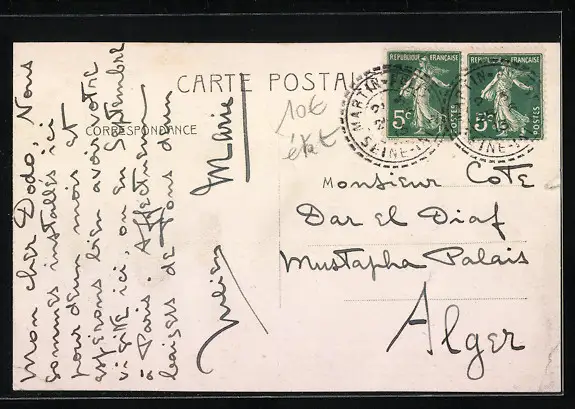 CARTE POSTALE
CORRESPONDANCE
Mon cher Dodo, Nous
sommes installés ici
pour deux mois et
espérons bien avoir votre
visite ici, ou en Septembre
à Paris. Affectueux
baisers de nous deux
Marie
10€
état
REPUBLIQUE FRANÇAISE
5c
POSTES
REPUBLIQUE FRANÇAISE
5c
POSTES
MARTIN
SEINE
Monsieur Cote
Dar el Diaf
Mustapha Palais
Alger